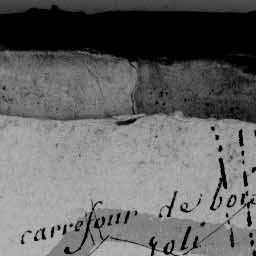 carrefour de bor
joli